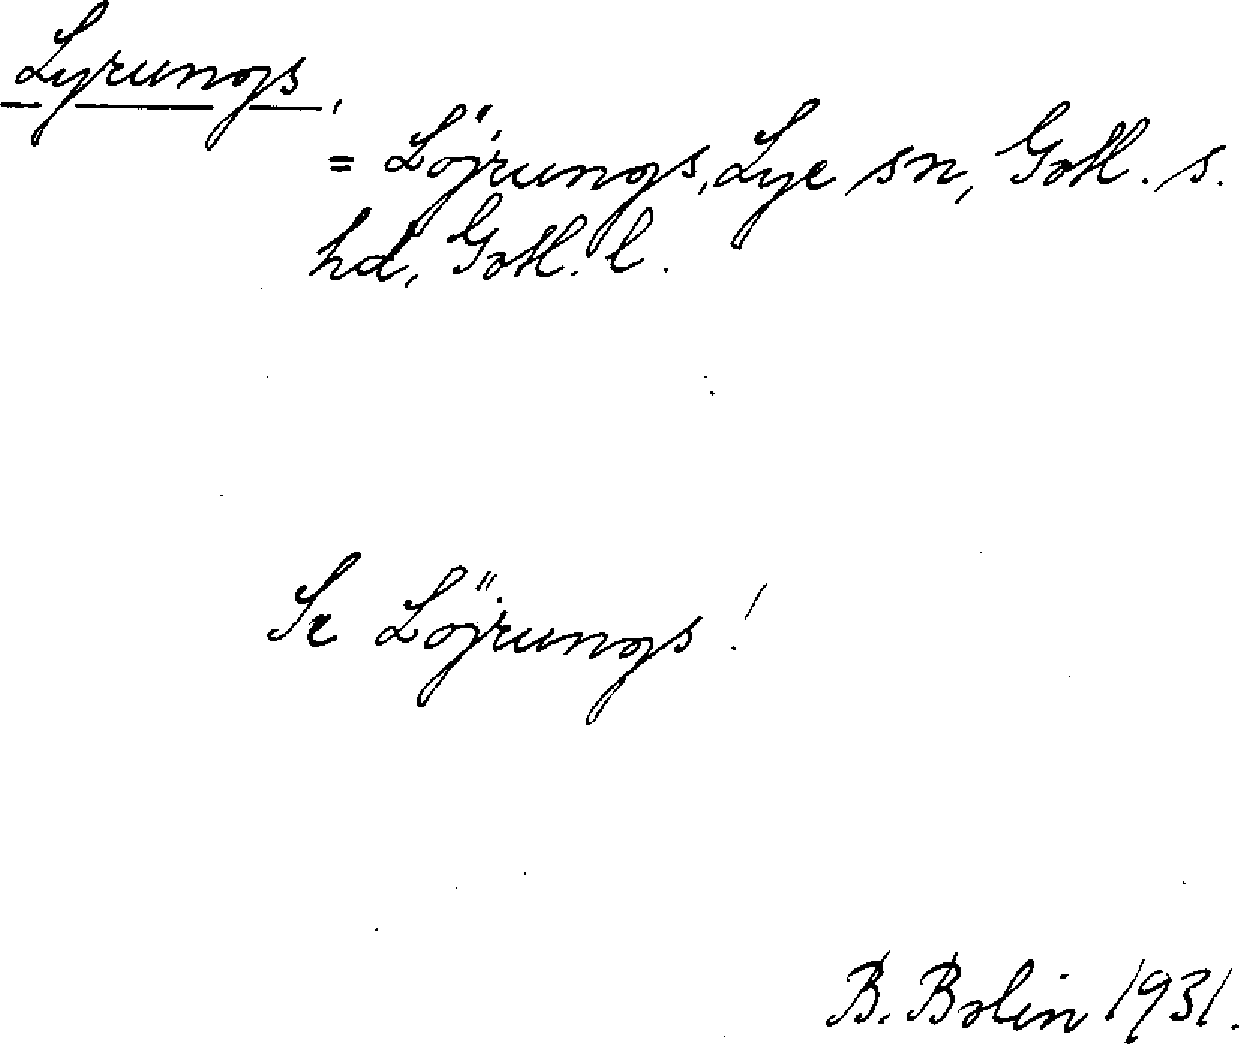 Lyrungs,
= Löjrungs, Lye sn, Gotl. s.
hd, Gotl. l.
Se Löjrungs!
B. Bolin 1931.